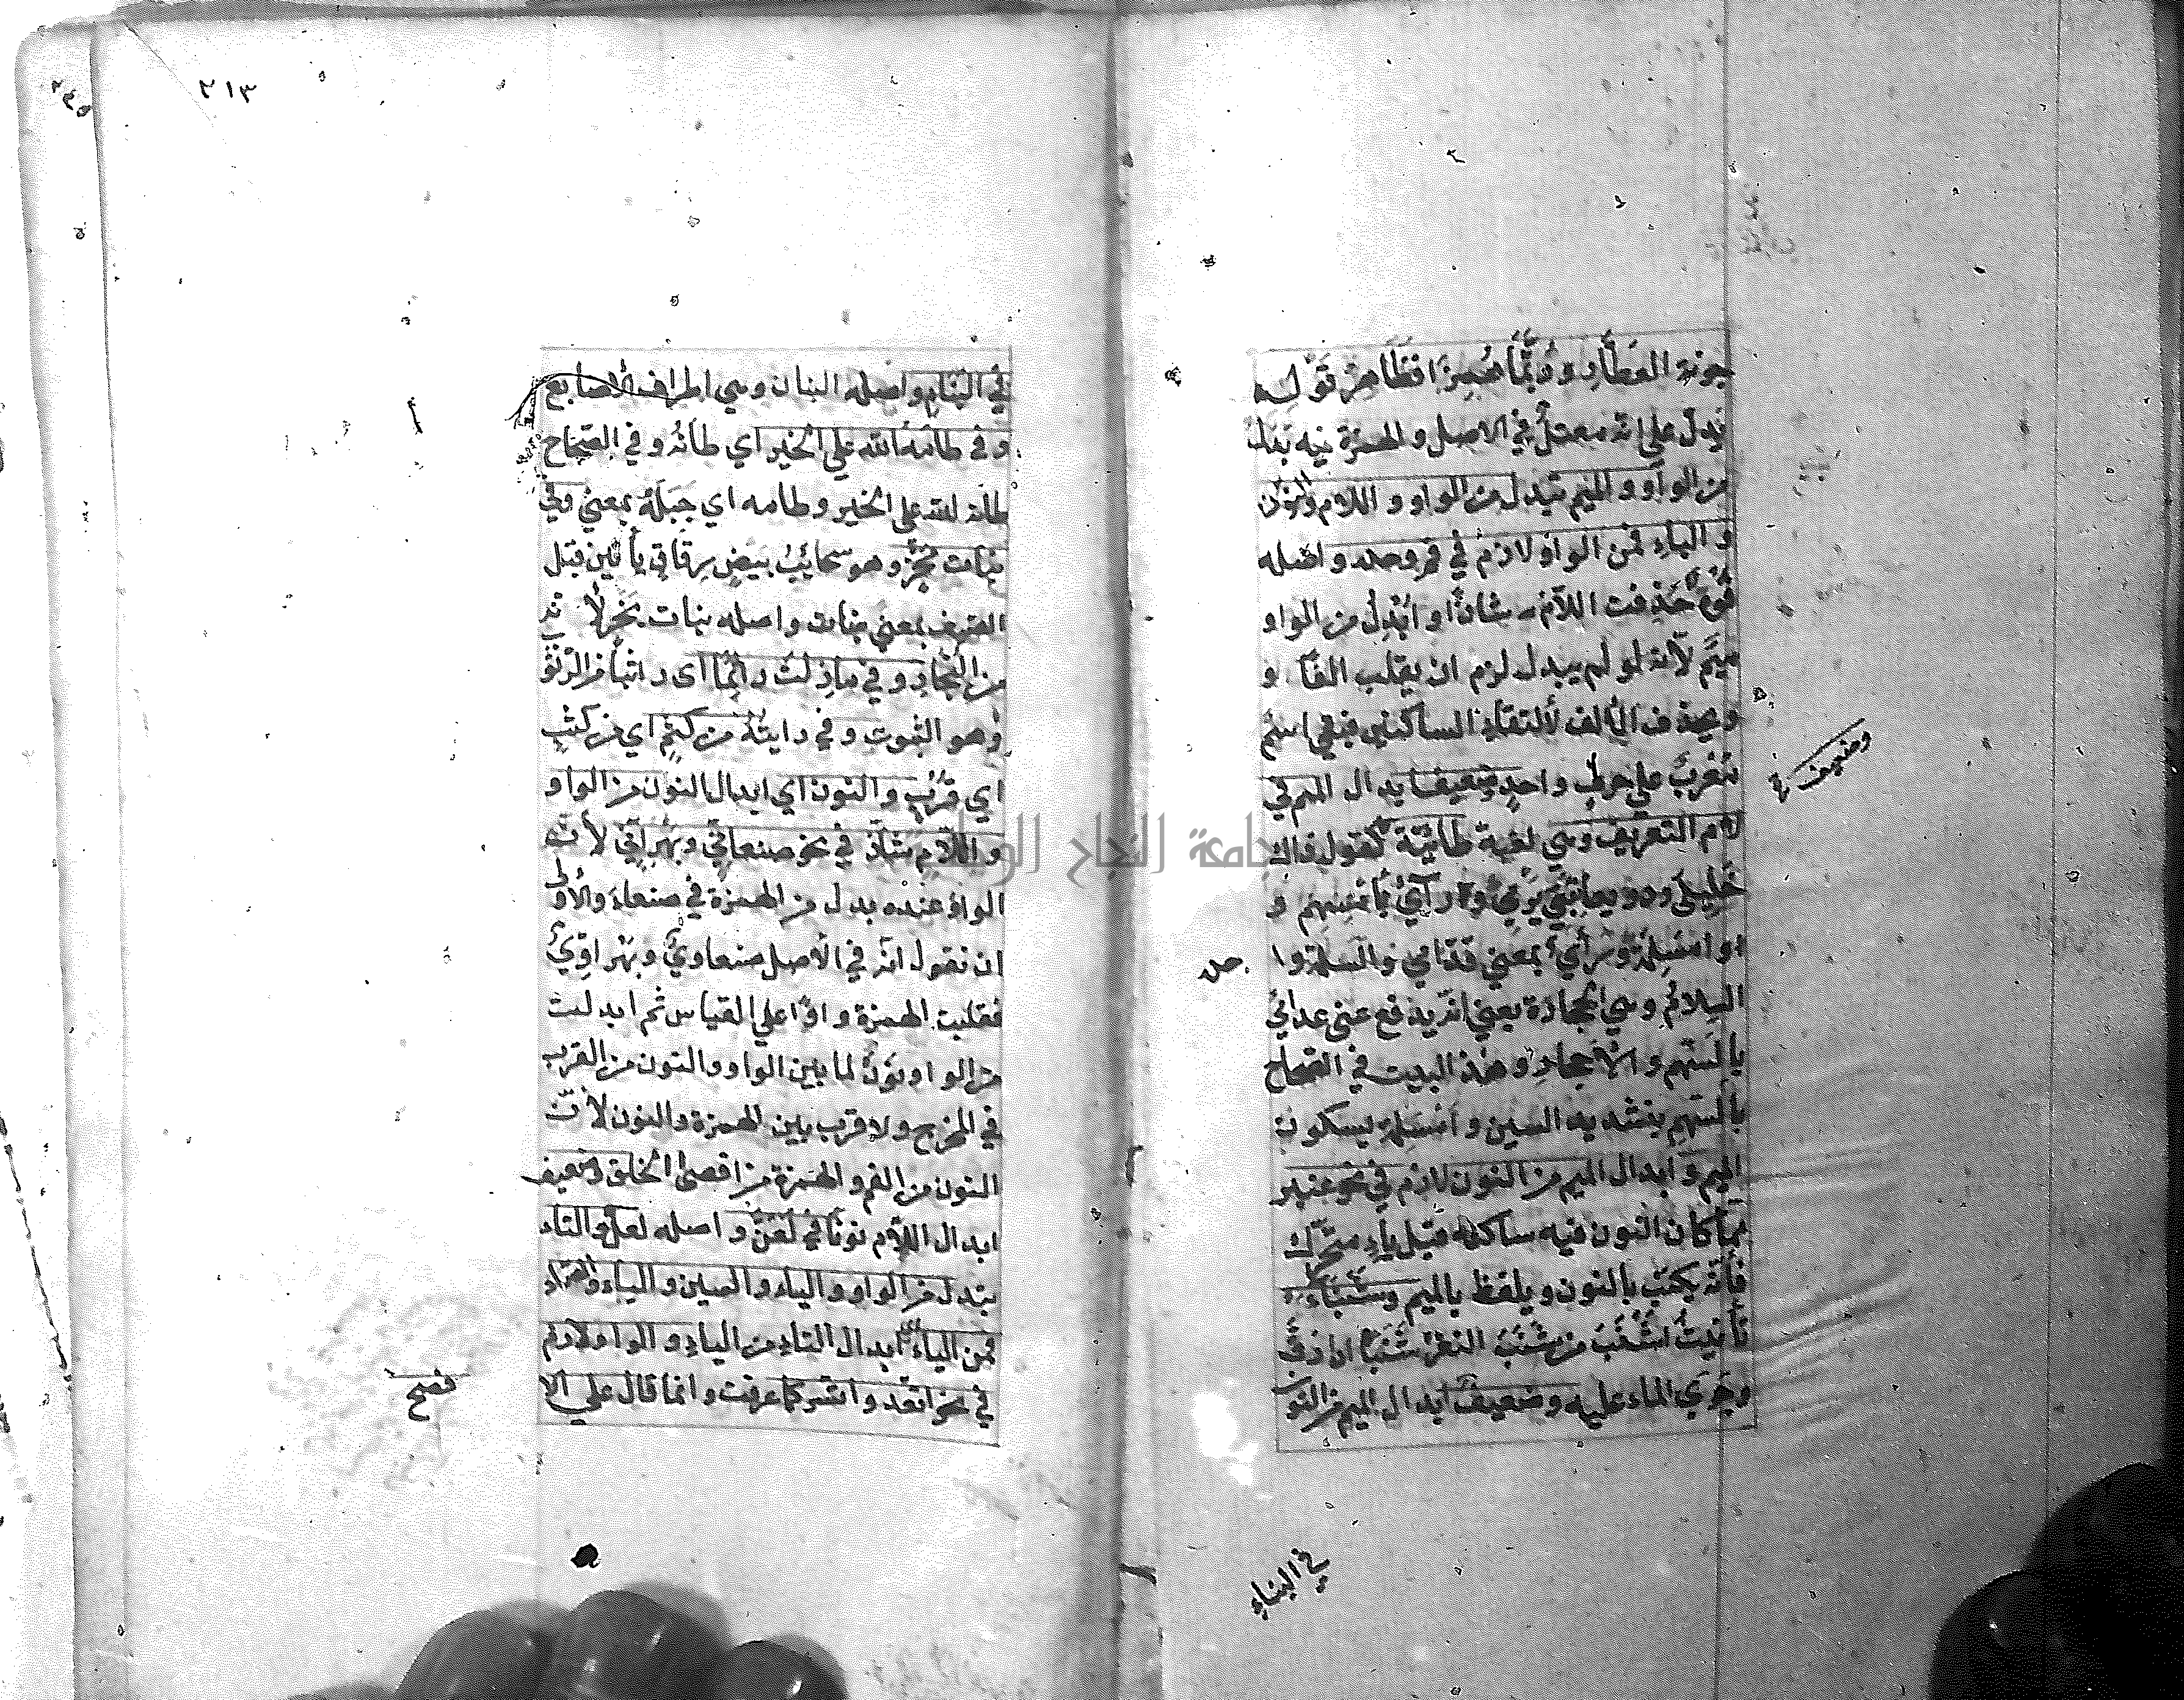 جونة العطار وربما همز انتظاهر قوله
يدل على انه معتل في الاصل والهمزة فيه بدل
من الواو والميم تبدل من الواو واللام والنون
والباء فمن الواو لازم في فم وحده واصله
فوه حذفت اللام شاذا وابدل من الواو
ميم لانه لو لم يبدل لزم ان يقلب الفا و
ويحذف الالف لالتقاء الساكنين فبقي اسم
معرب على حرف واحد وضعيف ابدال الميم في
لام التعريف وهي لغية طائية كقول ذاك
خليلي وذو يعاتبني يرمي ورائي بامسهم و
او امسلمة ورائي بمعنى قدامي والسلمة وا
السلام وهي الحجارة يعني انه يدفع عني عدائي
بالسهم والاحجار وهذا البيت في الصحاح
بالسهم بتشديد السين وامسلمة بسكون
الميم وابدال الميم من النون لازم في نحو عنبر
مما كان النون فيه ساكنة قبل باء متحرك
فانه يكتب بالنون ويلفظ بالميم وشنباء
تأنيث اشنب من شنب الثغر شنبا اذا رق
وجرى الماء عليه وضعيف ابدال الميم من النون
وضعيف
في البناء
٢١٣
في البنام واصله البنان وهي اطراف الاصابع
وفي طامه الله على الخير اي طانه وفي الصحاح
طانه الله على الخير وطامه اي جبله بمعنى وفي
بنات مخر وهو سحائب بيض رقاق يأتين قبل
الصيف بمعنى بنات واصله بنات بخر لا نه
من البخار وفي مازلت راتما اى راتبا من الرتو
وهو الثبوت وفي رايته من كثم اي من كثب
اي قرب والنون اي ابدال النون من الواو
واللام شاذ في نحو صنعاني وبهراني لأن
الواو عنده بدل من الهمزة في صنعاء والأولى
ان نقول انه في الاصل صنعاوي وبهراوي
فقلبت الهمزة واوا على القياس ثم ابدلت
من الواو نون لما بين الواو والنون من القرب
في المخرج ولا قرب بين الهمزة والنون لأن
النون من الفم والهمزة من اقصى الحلق وضعيف
ابدال اللام نونا في لعن واصله لعل والتاء
تبدل من الواو والياء والسين والباء والصاد
فمن الياء ابدال التاء من الياء والواو لازم
في نحو اتعد واتسر كما عرفت وانما قال على الا
فصح
جامعة النجاح الوطنية